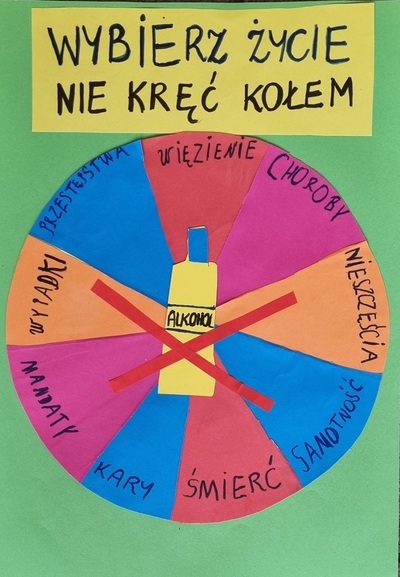 WYBIERZ ŻYCIE
NIE KRĘĆ KOŁEM
WIĘZIENIE
CHOROBY
NIESZCZĘŚCIA
SAMOTNOŚĆ
ŚMIERĆ
KARY
MANDATY
WYPADKI
PRZESTĘPSTWA
ALKOHOL